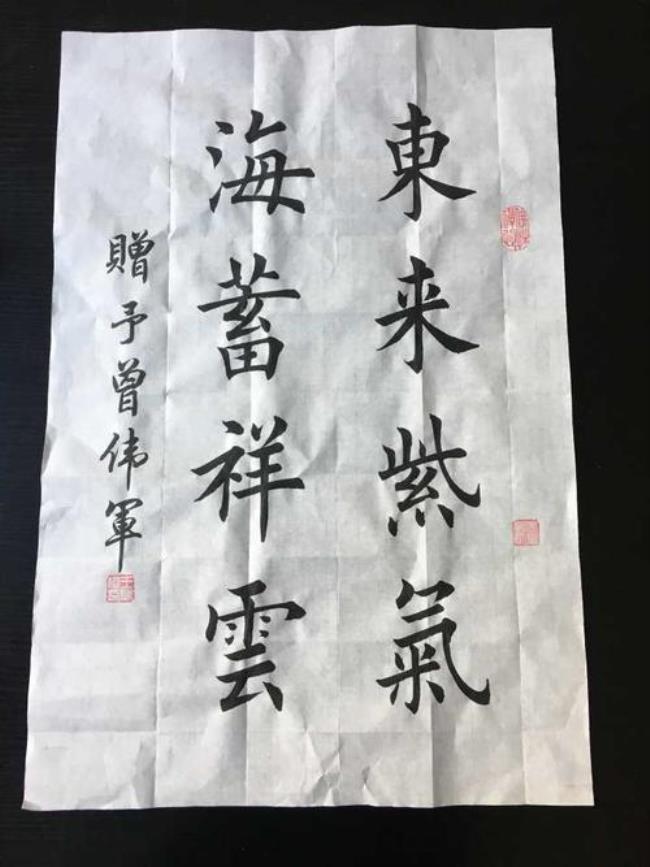 東来紫氣
海蓄祥雲
贈予曾伟軍